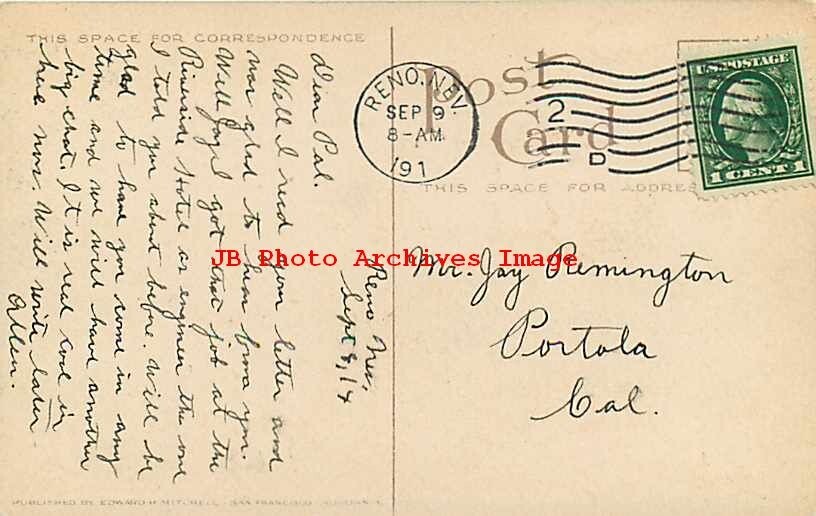 THIS SPACE FOR CORRESPONDENCE
Reno Nev,
Sept 8, 14
Dear Pal.
Well I recd your letter and
was glad to hear from you.
Well Jay I got that job at the
Riverside Hotel as engineer the one
I told you about before. Will be
glad to have you come in any
time and we will have another
big chat. It is real cool in
here now. Will write later
Allen.
Post
Card
THIS SPACE FOR ADDRES
RENO. NEV.
SEP 9
8-AM
191
2
D
U.S. POSTAGE
1 CENT 1
Mr. Jay Remington
Portola
Cal.
JB Photo Archives Image
PUBLISHED BY EDWARD H MITCHELL SAN FRANCISCO